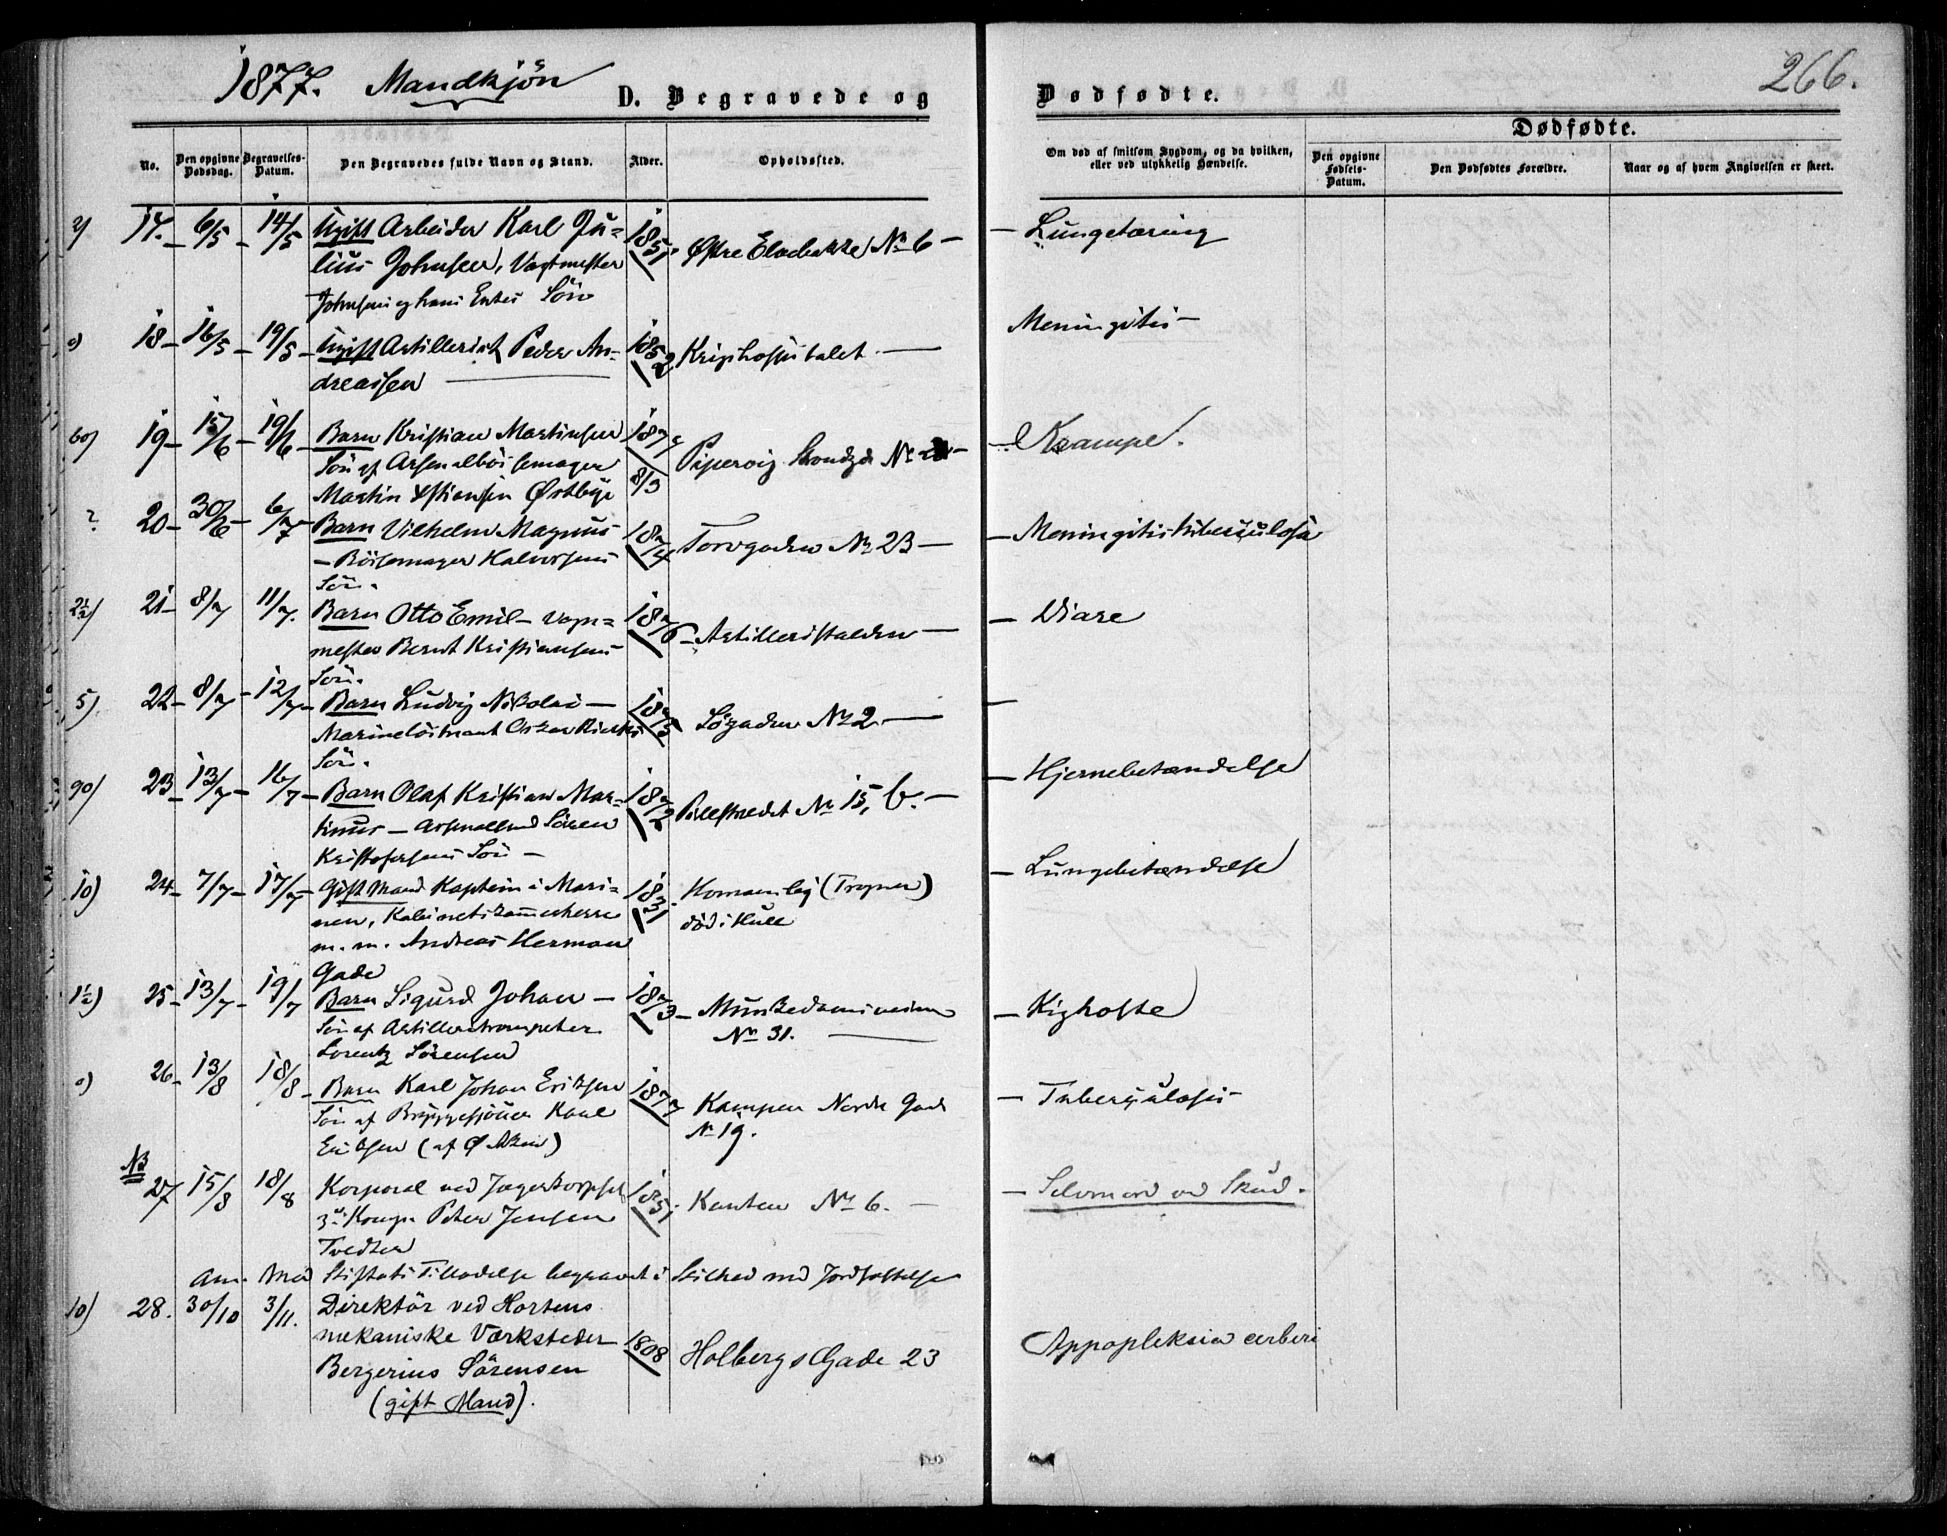 1877. Mandkjön
D. Begravede og Dødfødte.
266.
No.
Den opgivne Dødsdag.
Begravelses-Datum.
Den Begravedes fulde Navn og Stand.
Alder.
Opholdssted.
Om død af smitsom Sygdom, og da hvilken, eller ved ulykkelig Hændelse.
Dødfødte.
Den opgivne Fødsels-Datum.
Den Dødfødtes Forældre.
Naar og af hvem Angivelsen er skeet.
2) 17. 6/5 14/5 Ugift Arbeider Karl Ju= 1851 Østre Elvebakke No 6 — Lungetæring
lius Johnsen, Vagtmester
Johnsens og hans Enkes Sön
0) 18 16/5 19/5 Ugift Artillerist Peder An- 1852 Krigshospitalet — Meningitis
dreassen
60) 19 15/6 19/6 Barn Kristian Martinsen 1877 8/3 Pipervig Strandgd No — Krampe.
Sön af Arsenalbössemager
Martin Kstiansen Østbye
? 20 30/6 6/7 Barn Vilhelm Magnus 1874 Torvgaden No 23 — Meningitis tuberculosa
Bössemager Halvorsens
Sön.
2½) 21 8/7 11/7. Barn Otto Emil — Vogn= 1876 Artilleristalden — Diare
mester Bernt Kristiansens
Sön.
5) 22 8/7 12/7 Barn Ludvig Nikolai — 1875 Søgaden No 2. —
Marinelöitnant Oskar
Sön.
90) 23 13/7 16/7 Barn Olaf Kristian Mar- 1872 Pilestrædet No 15, b. — Hjernebetændelse
tinus — Arsenalsmd Sören
Kristofersens Sön —
10) 24 7/7 17/7 Gift Mand Kaptein i Mari- 1831 Homansby (Trogner) Lungebetændelse
nen, Kabinetskammerherre død i Hull
m. m. Andreas Herman
Gade
1½) 25 13/7 19/7 Barn Sigurd Johan — 1873 Munkedamsveien — Kighoste
Sön af Artilleritrompeter No 31.
Lorentz Sörensen
0) 26 13/8 18/8 Barn Karl Johan Eriksen 1877 Kampen Nordre Gade — Tuberculosis
Sön af Bryggesjouer Karl No 19.
Eriksen (af Ø Aker)
NB
27 15/8 18/8 Korporal ved Jægerkorpsets 1851 Kanten No 6. — Selvmord ved Skud.
3die Komp. Peter Jensen
Tvedten
Anm. Med Stiftets Tilladelse begravet i Stilhed med Jordfæstelse
10) 28. 30/10 3/11. Direktör ved Hortens 1808 Holbergs Gade 23 Appopleksia cerberi
mekaniske Værksteder
Bergerius Sörensen
(gift Mand).